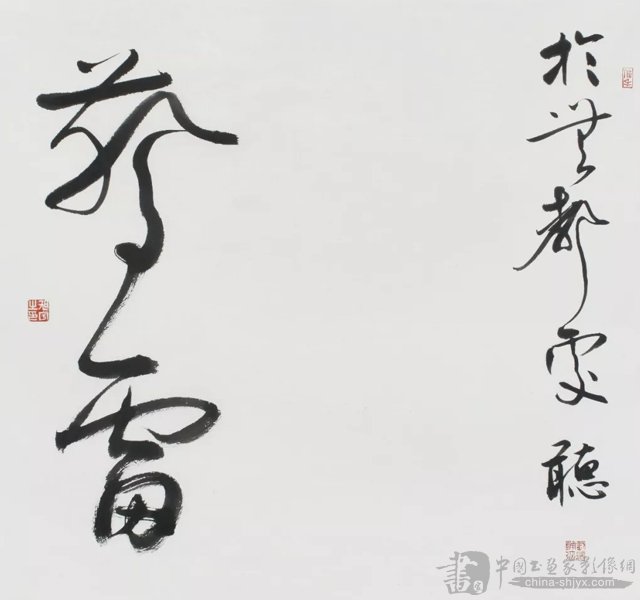 於無聲處聽
驚雷
書
中國书画家影像網
china-shjyx.com